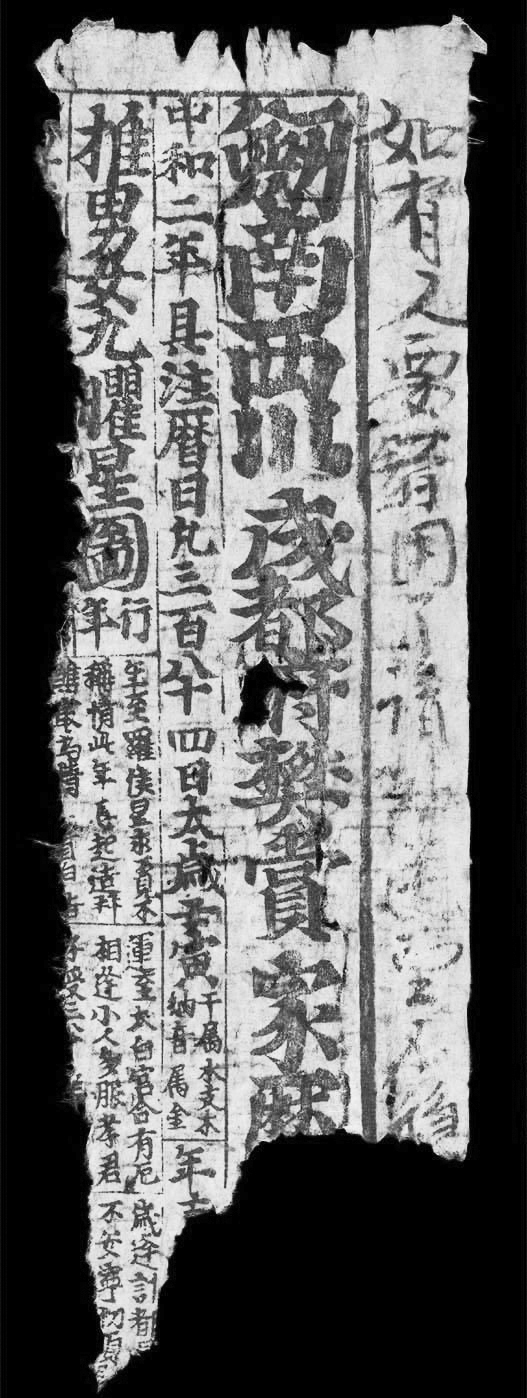 如有人要借用了請却送至不後
劒南西川成都府樊賞家曆
中和二年具注曆日凡三百八十四日太歲壬寅
干屬水支木
納音屬金
年十
推男女九曜星圖
行年
年至羅侯星求覓不
稱情此年長起造拜
運至太白宮合有厄
相逢小人多服孝君
歲逢計都
不安寧